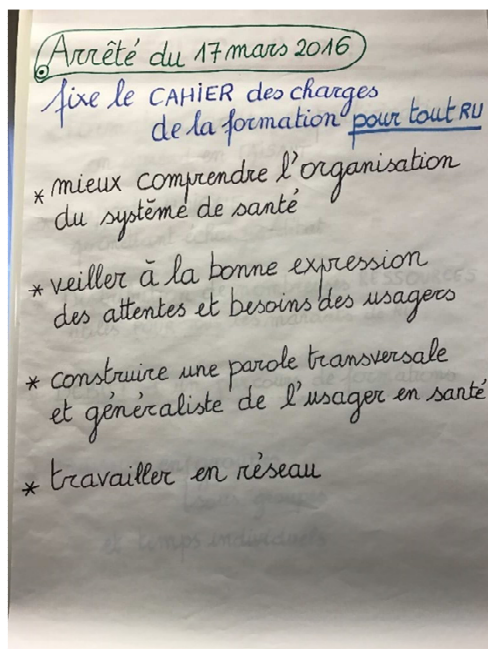 Arrêté du 17 mars 2016
fixe le CAHIER des charges
de la formation pour tout RU
* mieux comprendre l'organisation
du système de santé
* veiller à la bonne expression
des attentes et besoins des usagers
* construire une parole transversale
et généraliste de l'usager en santé
* travailler en réseau
et temps individuels